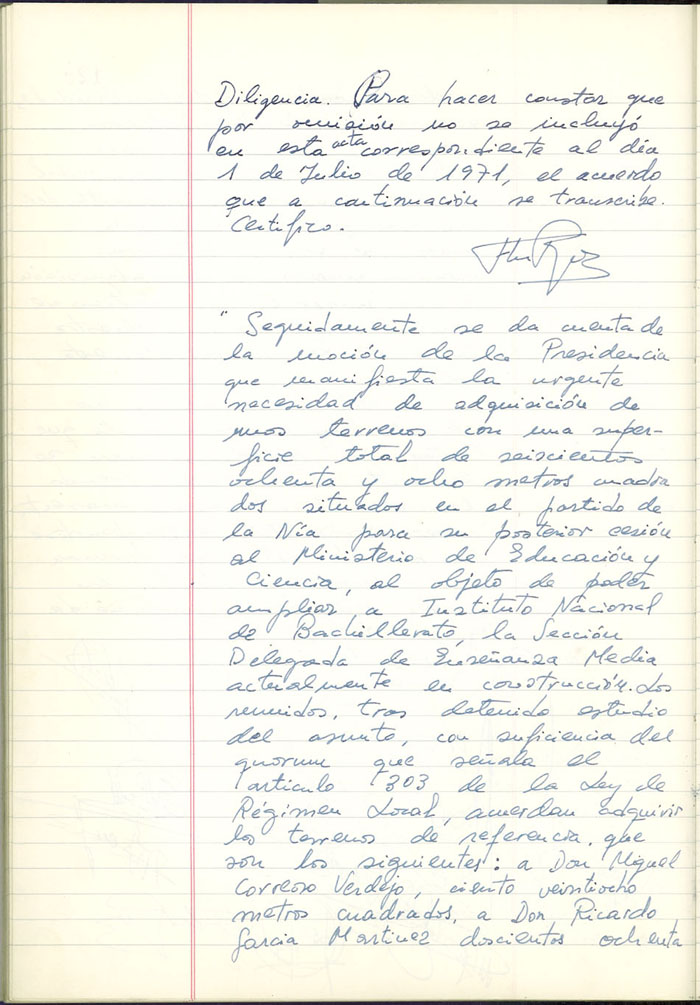 Diligencia. Para hacer constar que
por omisión no se incluyó
en esta acta correspondiente al día
1 de Julio de 1971, el acuerdo
que a continuación se transcribe.
Certifico.
" Seguidamente se da cuenta de
la moción de la Presidencia
que manifiesta la urgente
necesidad de adquisición de
unos terrenos con una super-
ficie total de seiscientos
ochenta y ocho metros cuadra
dos situados en el partido de
la Nía para su posterior cesión
al Ministerio de Educación y
Ciencia, al objeto de poder
ampliar a Instituto Nacional
de Bachillerato, la Sección
Delegada de Enseñanza Media
actualmente en construcción. Los
reunidos, tras detenido estudio
del asunto, con suficiencia del
quorum que señala el
artículo 303 de la Ley de
Régimen Local, acuerdan adquirir
los terrenos de referencia, que
son los siguientes: a Don Miguel
Correoso Verdejo, ciento veintiocho
metros cuadrados, a Don Ricardo
Garcia Martinez doscientos ochenta